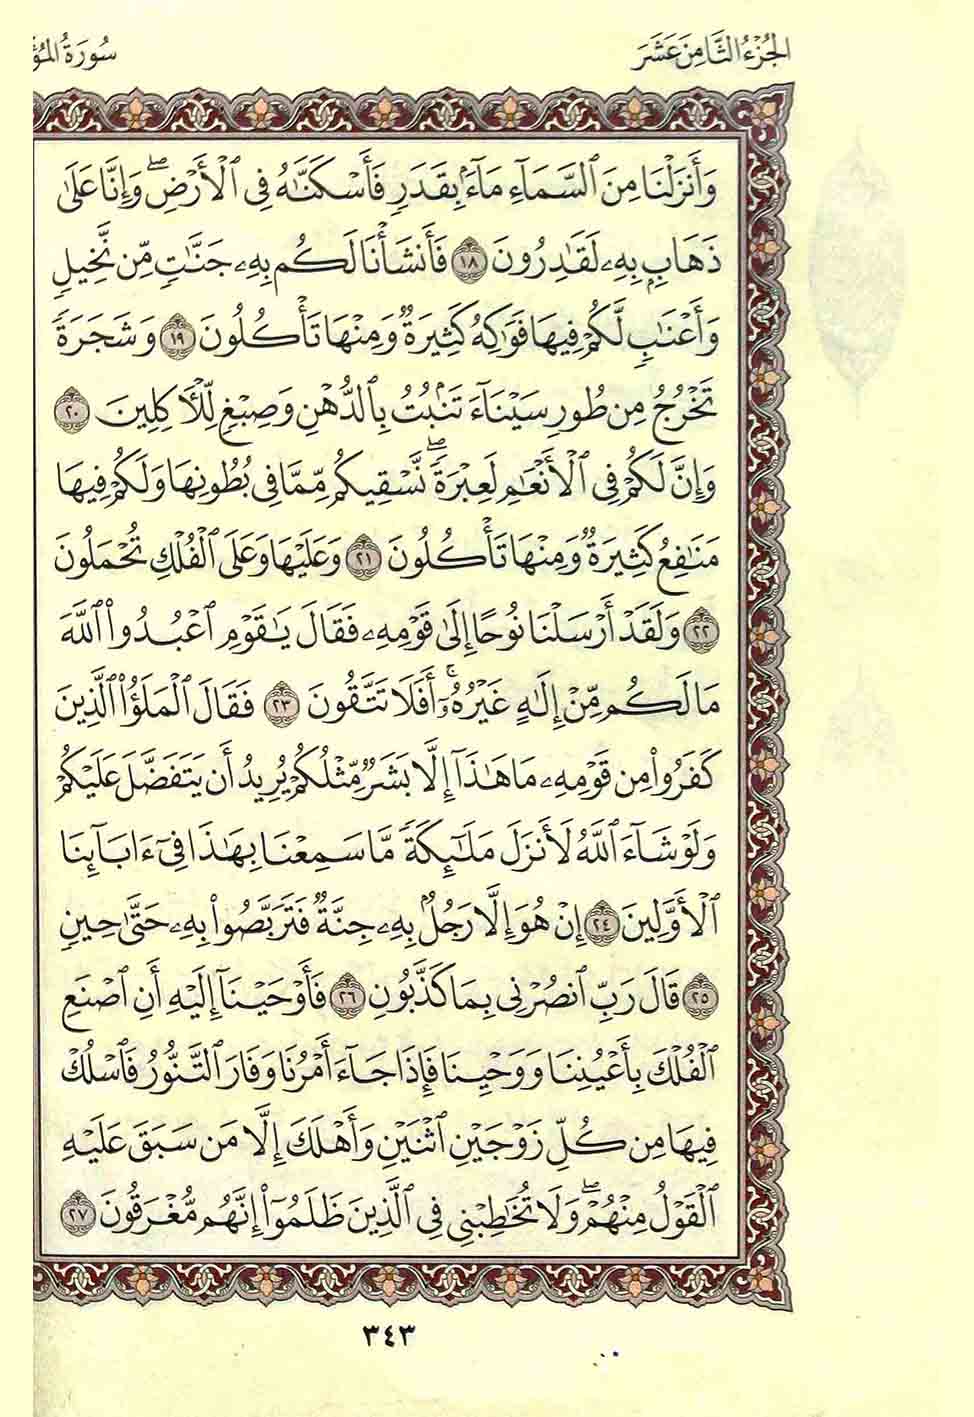 الجُزْءُ الثَّامِنَ عَشَرَ
سُورَةُ
وَأَنزَلْنَا مِنَ ٱلسَّمَآءِ مَآءَۢ بِقَدَرٖ فَأَسْكَنَّٰهُ فِي ٱلْأَرْضِۖ وَإِنَّا عَلَىٰ
ذَهَابِۭ بِهِۦ لَقَٰدِرُونَ ١٨ فَأَنشَأْنَا لَكُم بِهِۦ جَنَّٰتٖ مِّن نَّخِيلٖ
وَأَعْنَٰبٖ لَّكُمْ فِيهَا فَوَٰكِهُ كَثِيرَةٞ وَمِنْهَا تَأْكُلُونَ ١٩ وَشَجَرَةٗ
تَخْرُجُ مِن طُورِ سَيْنَآءَ تَنۢبُتُ بِٱلدُّهْنِ وَصِبْغٖ لِّلْأٓكِلِينَ ٢٠
وَإِنَّ لَكُمْ فِي ٱلْأَنْعَٰمِ لَعِبْرَةٗۖ نُّسْقِيكُم مِّمَّا فِي بُطُونِهَا وَلَكُمْ فِيهَا
مَنَٰفِعُ كَثِيرَةٞ وَمِنْهَا تَأْكُلُونَ ٢١ وَعَلَيْهَا وَعَلَى ٱلْفُلْكِ تُحْمَلُونَ
٢٢ وَلَقَدْ أَرْسَلْنَا نُوحًا إِلَىٰ قَوْمِهِۦ فَقَالَ يَٰقَوْمِ ٱعْبُدُواْ ٱللَّهَ
مَا لَكُم مِّنْ إِلَٰهٍ غَيْرُهُۥٓۚ أَفَلَا تَتَّقُونَ ٢٣ فَقَالَ ٱلْمَلَؤُاْ ٱلَّذِينَ
كَفَرُواْ مِن قَوْمِهِۦ مَا هَٰذَآ إِلَّا بَشَرٞ مِّثْلُكُمْ يُرِيدُ أَن يَتَفَضَّلَ عَلَيْكُمْ
وَلَوْ شَآءَ ٱللَّهُ لَأَنزَلَ مَلَٰٓئِكَةٗ مَّا سَمِعْنَا بِهَٰذَا فِيٓ ءَابَآئِنَا
ٱلْأَوَّلِينَ ٢٤ إِنْ هُوَ إِلَّا رَجُلُۢ بِهِۦ جِنَّةٞ فَتَرَبَّصُواْ بِهِۦ حَتَّىٰ حِينٖ
٢٥ قَالَ رَبِّ ٱنصُرْنِي بِمَا كَذَّبُونِ ٢٦ فَأَوْحَيْنَآ إِلَيْهِ أَنِ ٱصْنَعِ
ٱلْفُلْكَ بِأَعْيُنِنَا وَوَحْيِنَا فَإِذَا جَآءَ أَمْرُنَا وَفَارَ ٱلتَّنُّورُ فَٱسْلُكْ
فِيهَا مِن كُلّٖ زَوْجَيْنِ ٱثْنَيْنِ وَأَهْلَكَ إِلَّا مَن سَبَقَ عَلَيْهِ
ٱلْقَوْلُ مِنْهُمْۖ وَلَا تُخَٰطِبْنِي فِي ٱلَّذِينَ ظَلَمُوٓاْ إِنَّهُم مُّغْرَقُونَ ٢٧
٣٤٣